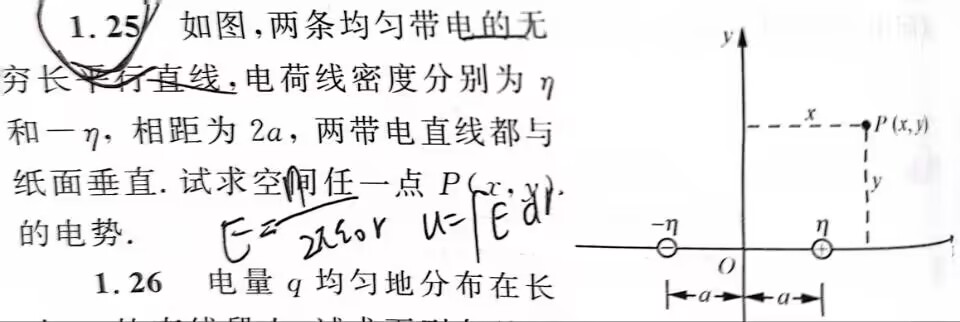 1.25 如图,两条均匀带电的无
穷长平行直线,电荷线密度分别为 η
和－η, 相距为 2a, 两带电直线都与
纸面垂直. 试求空间任一点 P(x, y).
的电势.
E= η/2πε₀r u=∫E dr
1.26 电量 q 均匀地分布在长
y
x
P(x,y)
y
-η
η
O
a
a